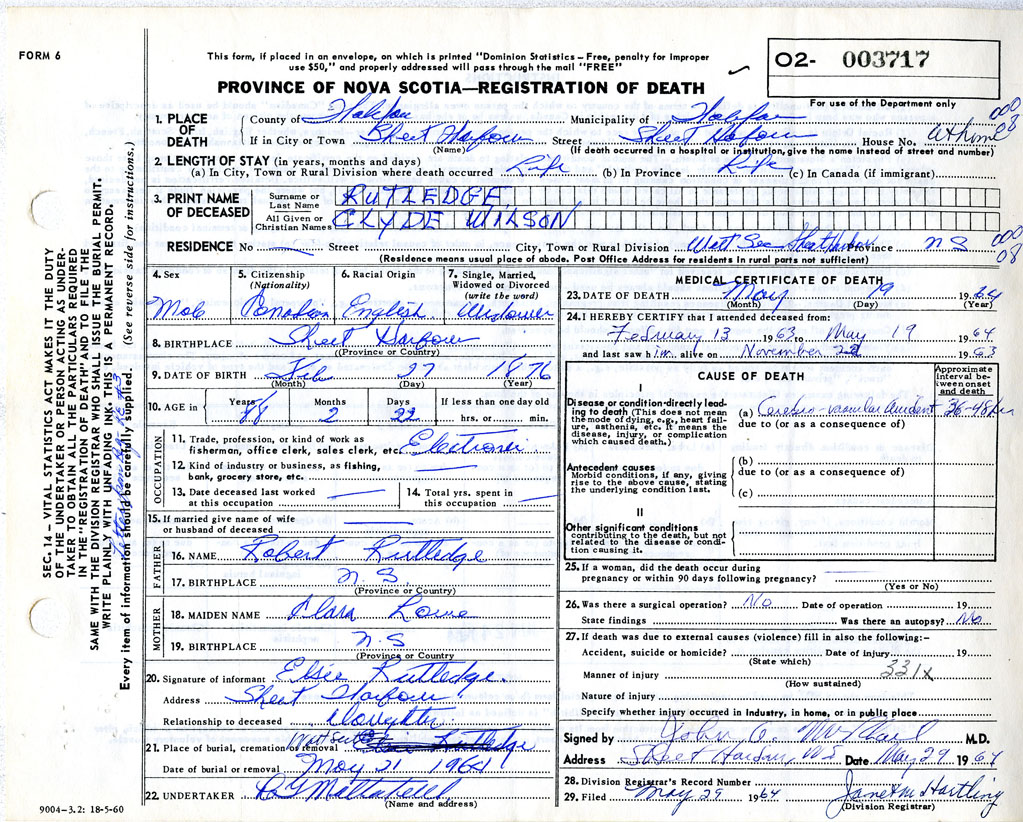 FORM 6
This form, if placed in an envelope, on which is printed "Dominion Statistics – Free, penalty for improper
use $50," and properly addressed will pass through the mail "FREE"
O2- 003717
For use of the Department only
PROVINCE OF NOVA SCOTIA—REGISTRATION OF DEATH
1. PLACE OF DEATH County of Halifax Municipality of Halifax 000
If in City or Town Sheet Harbour Street Sheet Harbour House No. at home 08
(Name) (If death occurred in a hospital or institution, give the name instead of street and number)
2. LENGTH OF STAY (in years, months and days)
(a) In City, Town or Rural Division where death occurred Life (b) In Province Life (c) In Canada (if immigrant)
3. PRINT NAME OF DECEASED
Surname or Last Name RUTLEDGE,
All Given or Christian Names CLYDE WILSON
RESIDENCE No — Street City, Town or Rural Division Watt Sec Sheet Harbour Province N S 000
08
(Residence means usual place of abode. Post Office Address for residents in rural parts not sufficient)
4. Sex
Male
5. Citizenship (Nationality)
Canadian
6. Racial Origin
English
7. Single, Married, Widowed or Divorced (write the word)
Widower
8. BIRTHPLACE Sheet Harbour
(Province or Country)
9. DATE OF BIRTH Feb 27 1876
(Month) (Day) (Year)
10. AGE in Years 88 Months 2 Days 22 If less than one day old
hrs. or min.
OCCUPATION
11. Trade, profession, or kind of work as
fisherman, office clerk, sales clerk, etc.
12. Kind of industry or business, as fishing,
bank, grocery store, etc. —
13. Date deceased last worked
at this occupation —
14. Total yrs. spent in
this occupation —
15. If married give name of wife
or husband of deceased —
FATHER
16. NAME Robert Rutledge
17. BIRTHPLACE N. S.
(Province or Country)
MOTHER
18. MAIDEN NAME Clara Lowe
19. BIRTHPLACE N. S
(Province or Country)
20. Signature of informant Elsie Rutledge.
Address Sheet Harbour
Relationship to deceased Daughter.
21. Place of burial, cremation or removal Watt Sect Elsie Rutledge
Date of burial or removal May 21 1964
22. UNDERTAKER
(Name and address)
9004–3.2: 18-5-60
MEDICAL CERTIFICATE OF DEATH
23. DATE OF DEATH May 19 1964
(Month) (Day) (Year)
24. I HEREBY CERTIFY that I attended deceased from:
February 13 1963 to May 19 1964
and last saw him alive on November 22 1963
CAUSE OF DEATH
Approximate interval between onset and death
I
Disease or condition directly leading to death (This does not mean the mode of dying, e.g., heart failure, asthenia, etc. It means the disease, injury, or complication which caused death.)
(a) Cerebro-vascular Accident 36-48 hrs
due to (or as a consequence of)
Antecedent causes
Morbid conditions, if any, giving rise to the above cause, stating the underlying condition last.
(b)
due to (or as a consequence of)
(c)
II
Other significant conditions
contributing to the death, but not related to the disease or condition causing it.
25. If a woman, did the death occur during
pregnancy or within 90 days following pregnancy?
(Yes or No)
26. Was there a surgical operation? No Date of operation 19
State findings Was there an autopsy? No
27. If death was due to external causes (violence) fill in also the following:–
Accident, suicide or homicide? Date of injury 19
(State which)
Manner of injury 331X
(How sustained)
Nature of injury
Specify whether injury occurred in Industry, in home, or in public place
Signed by John A. M.D.
Address Sheet Harbour, NS Date May 29 1964
28. Division Registrar's Record Number
29. Filed May 29 1964 Janet M Hartling
(Division Registrar)
SEC. 14 – VITAL STATISTICS ACT MAKES IT THE DUTY
OF THE UNDERTAKER OR PERSON ACTING AS UNDER-
TAKER TO OBTAIN ALL THE PARTICULARS REQUIRED
IN THE "REGISTRATION OF DEATH" AND TO FILE THE
SAME WITH THE DIVISION REGISTRAR WHO SHALL ISSUE THE BURIAL PERMIT.
WRITE PLAINLY WITH UNFADING INK. THIS IS A PERMANENT RECORD.
Every item of information should be carefully supplied. (See reverse side for instructions.)